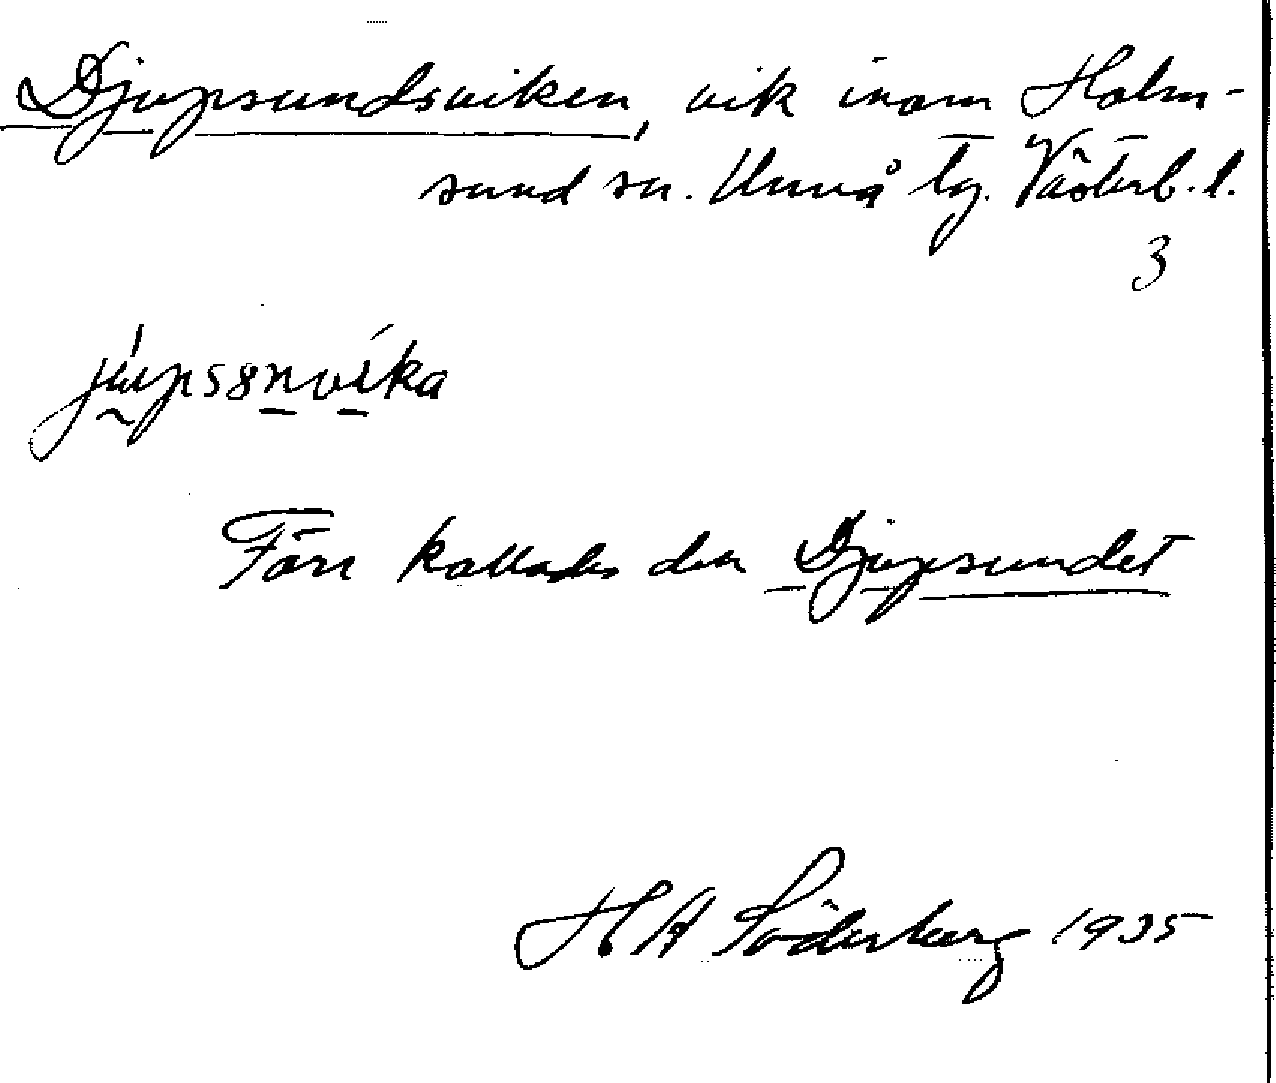 Djupsundsviken, vik inom Holm-
sund sn. Umeå tg. Västerb. l.
3
Förr kallades den Djupsundet
H A Söderberg 1935